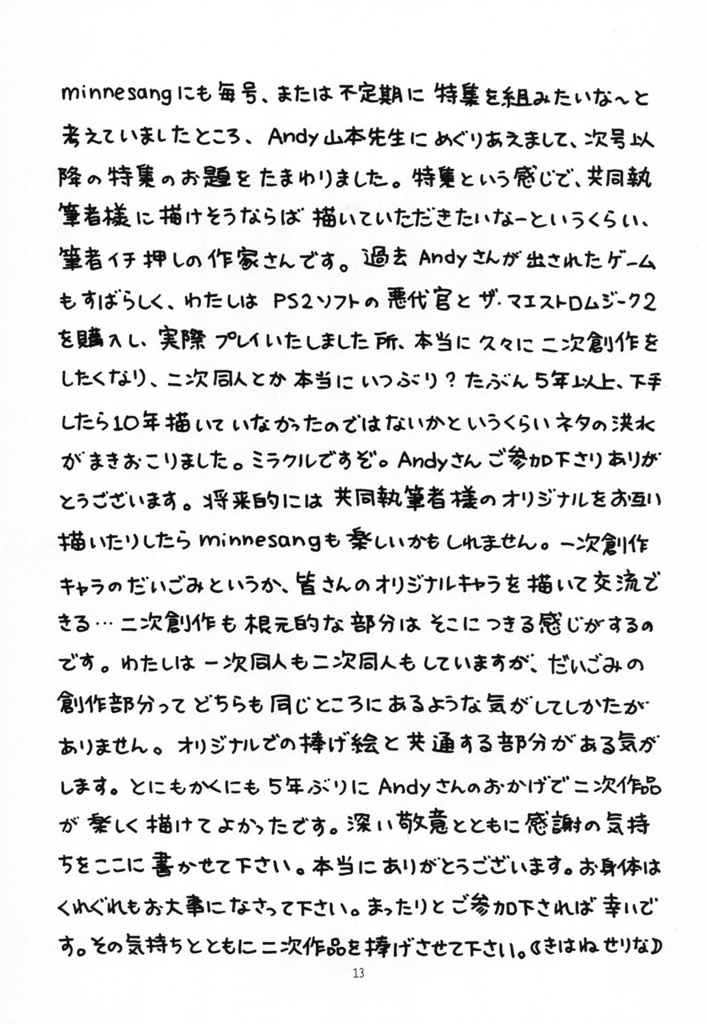 minnesangにも毎号、または不定期に特集を組みたいな～と
考えていましたところ、Andy山本先生にめぐりあえまして、次号以
降の特集のお題をたまわりました。特集という感じで、共同執
筆者様に描けそうならば描いていただきたいなーというくらい、
筆者イチ押しの作家さんです。過去Andyさんが出されたゲーム
もすばらしく、わたしはPS2ソフトの悪代官とザ・マエストロムジーク2
を購入し、実際プレイいたしました所、本当に久々に二次創作を
したくなり、二次同人とか本当にいつぶり？たぶん5年以上、下手
したら10年描いていなかったのではないかというくらいネタの洪水
がまきおこりました。ミラクルですぞ。Andyさんご参加下さりありが
とうございます。将来的には共同執筆者様のオリジナルをお互い
描いたりしたらminnesangも楽しいかもしれません。一次創作
キャラのだいごみというか、皆さんのオリジナルキャラを描いて交流で
きる…二次創作も根元的な部分はそこにつきる感じがするの
です。わたしは一次同人も二次同人もしていますが、だいごみの
創作部分ってどちらも同じところにあるような気がしてしかたが
ありません。オリジナルでの捧げ絵と共通する部分がある気が
します。とにもかくにも5年ぶりにAndyさんのおかげで二次作品
が楽しく描けてよかったです。深い敬意とともに感謝の気持
ちをここに書かせて下さい。本当にありがとうございます。お身体は
くれぐれもお大事になさって下さい。まったりとご参加下されば幸いで
す。その気持ちとともに二次作品を捧げさせて下さい。《きはねせりな》
13